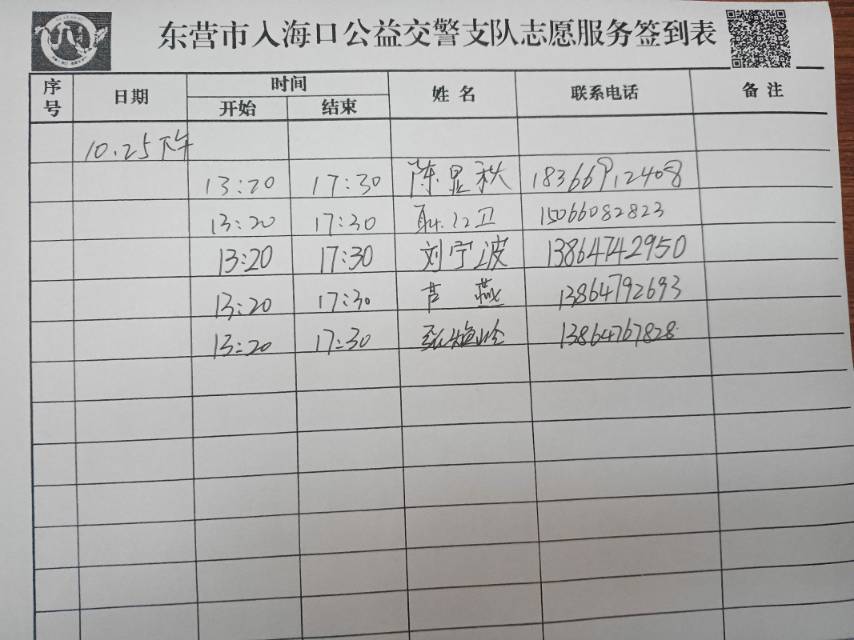 东营市入海口公益交警支队志愿服务签到表
序号 日期 时间 开始 结束 姓名 联系电话 备注
10.25下午
13:20 17:30 陈显秋 18366912408
13:20 17:30 15066082823
13:20 17:30 刘宁波 13864742950
13:20 17:30 芦燕 13864792693
13:20 17:30 13864767828